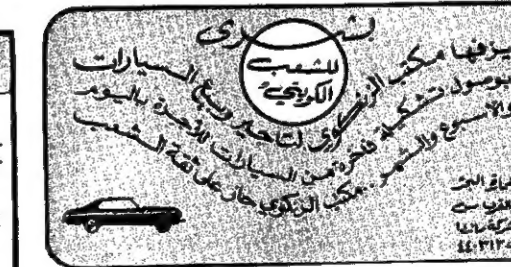 بشرى
للشعب
الكويتي
يزفها مكتب الزنكوي لتأجير وبيع السيارات
بوصول تشكيلة فاخرة من السيارات للأجرة باليوم
والأسبوع والشهر .. مكتب الزنكوي حاز على ثقة الشعب